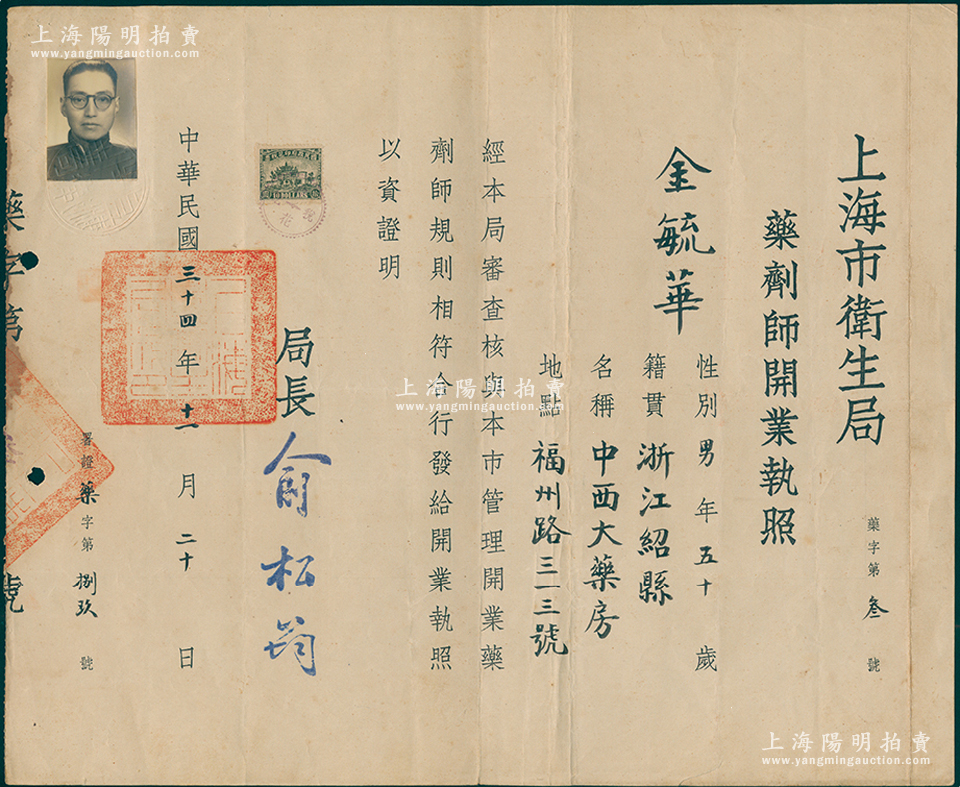 上海市衛生局
藥劑師開業執照
藥字第叁號
金毓華
性別男年五十歲
籍貫浙江紹縣
名稱中西大藥房
地點福州路三一三號
經本局審查核與本市管理開業藥
劑師規則相符合行發給開業執照
以資證明
局長俞松筠
中華民國三十四年十一月二十日
署證藥字第捌玖號
藥字第
號
上海陽明拍賣
www.yangmingauction.com
上海陽明拍賣
www.yangmingauction.com
上海陽明拍賣
www.yangmingauction.com